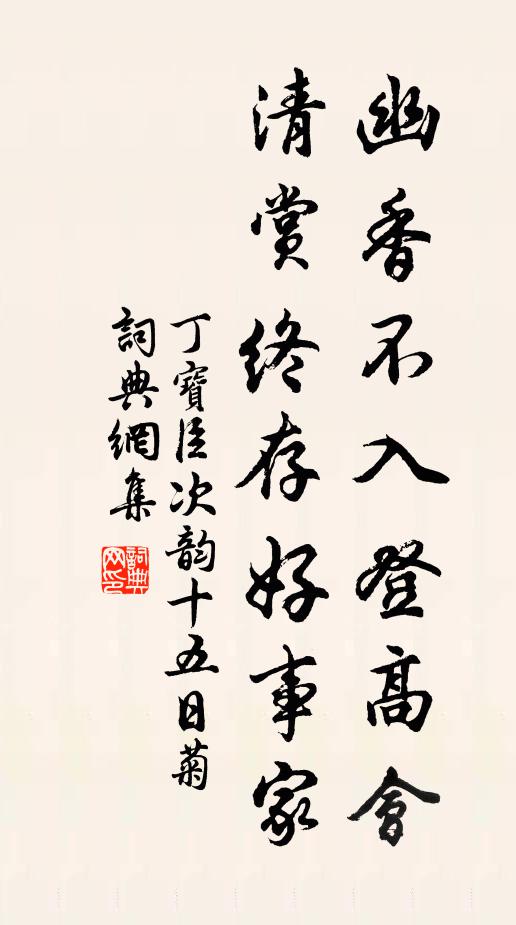 幽香不入登高會
清賞終存好事家
丁寶臣次韵十五日菊
詞典網集
詞典网印